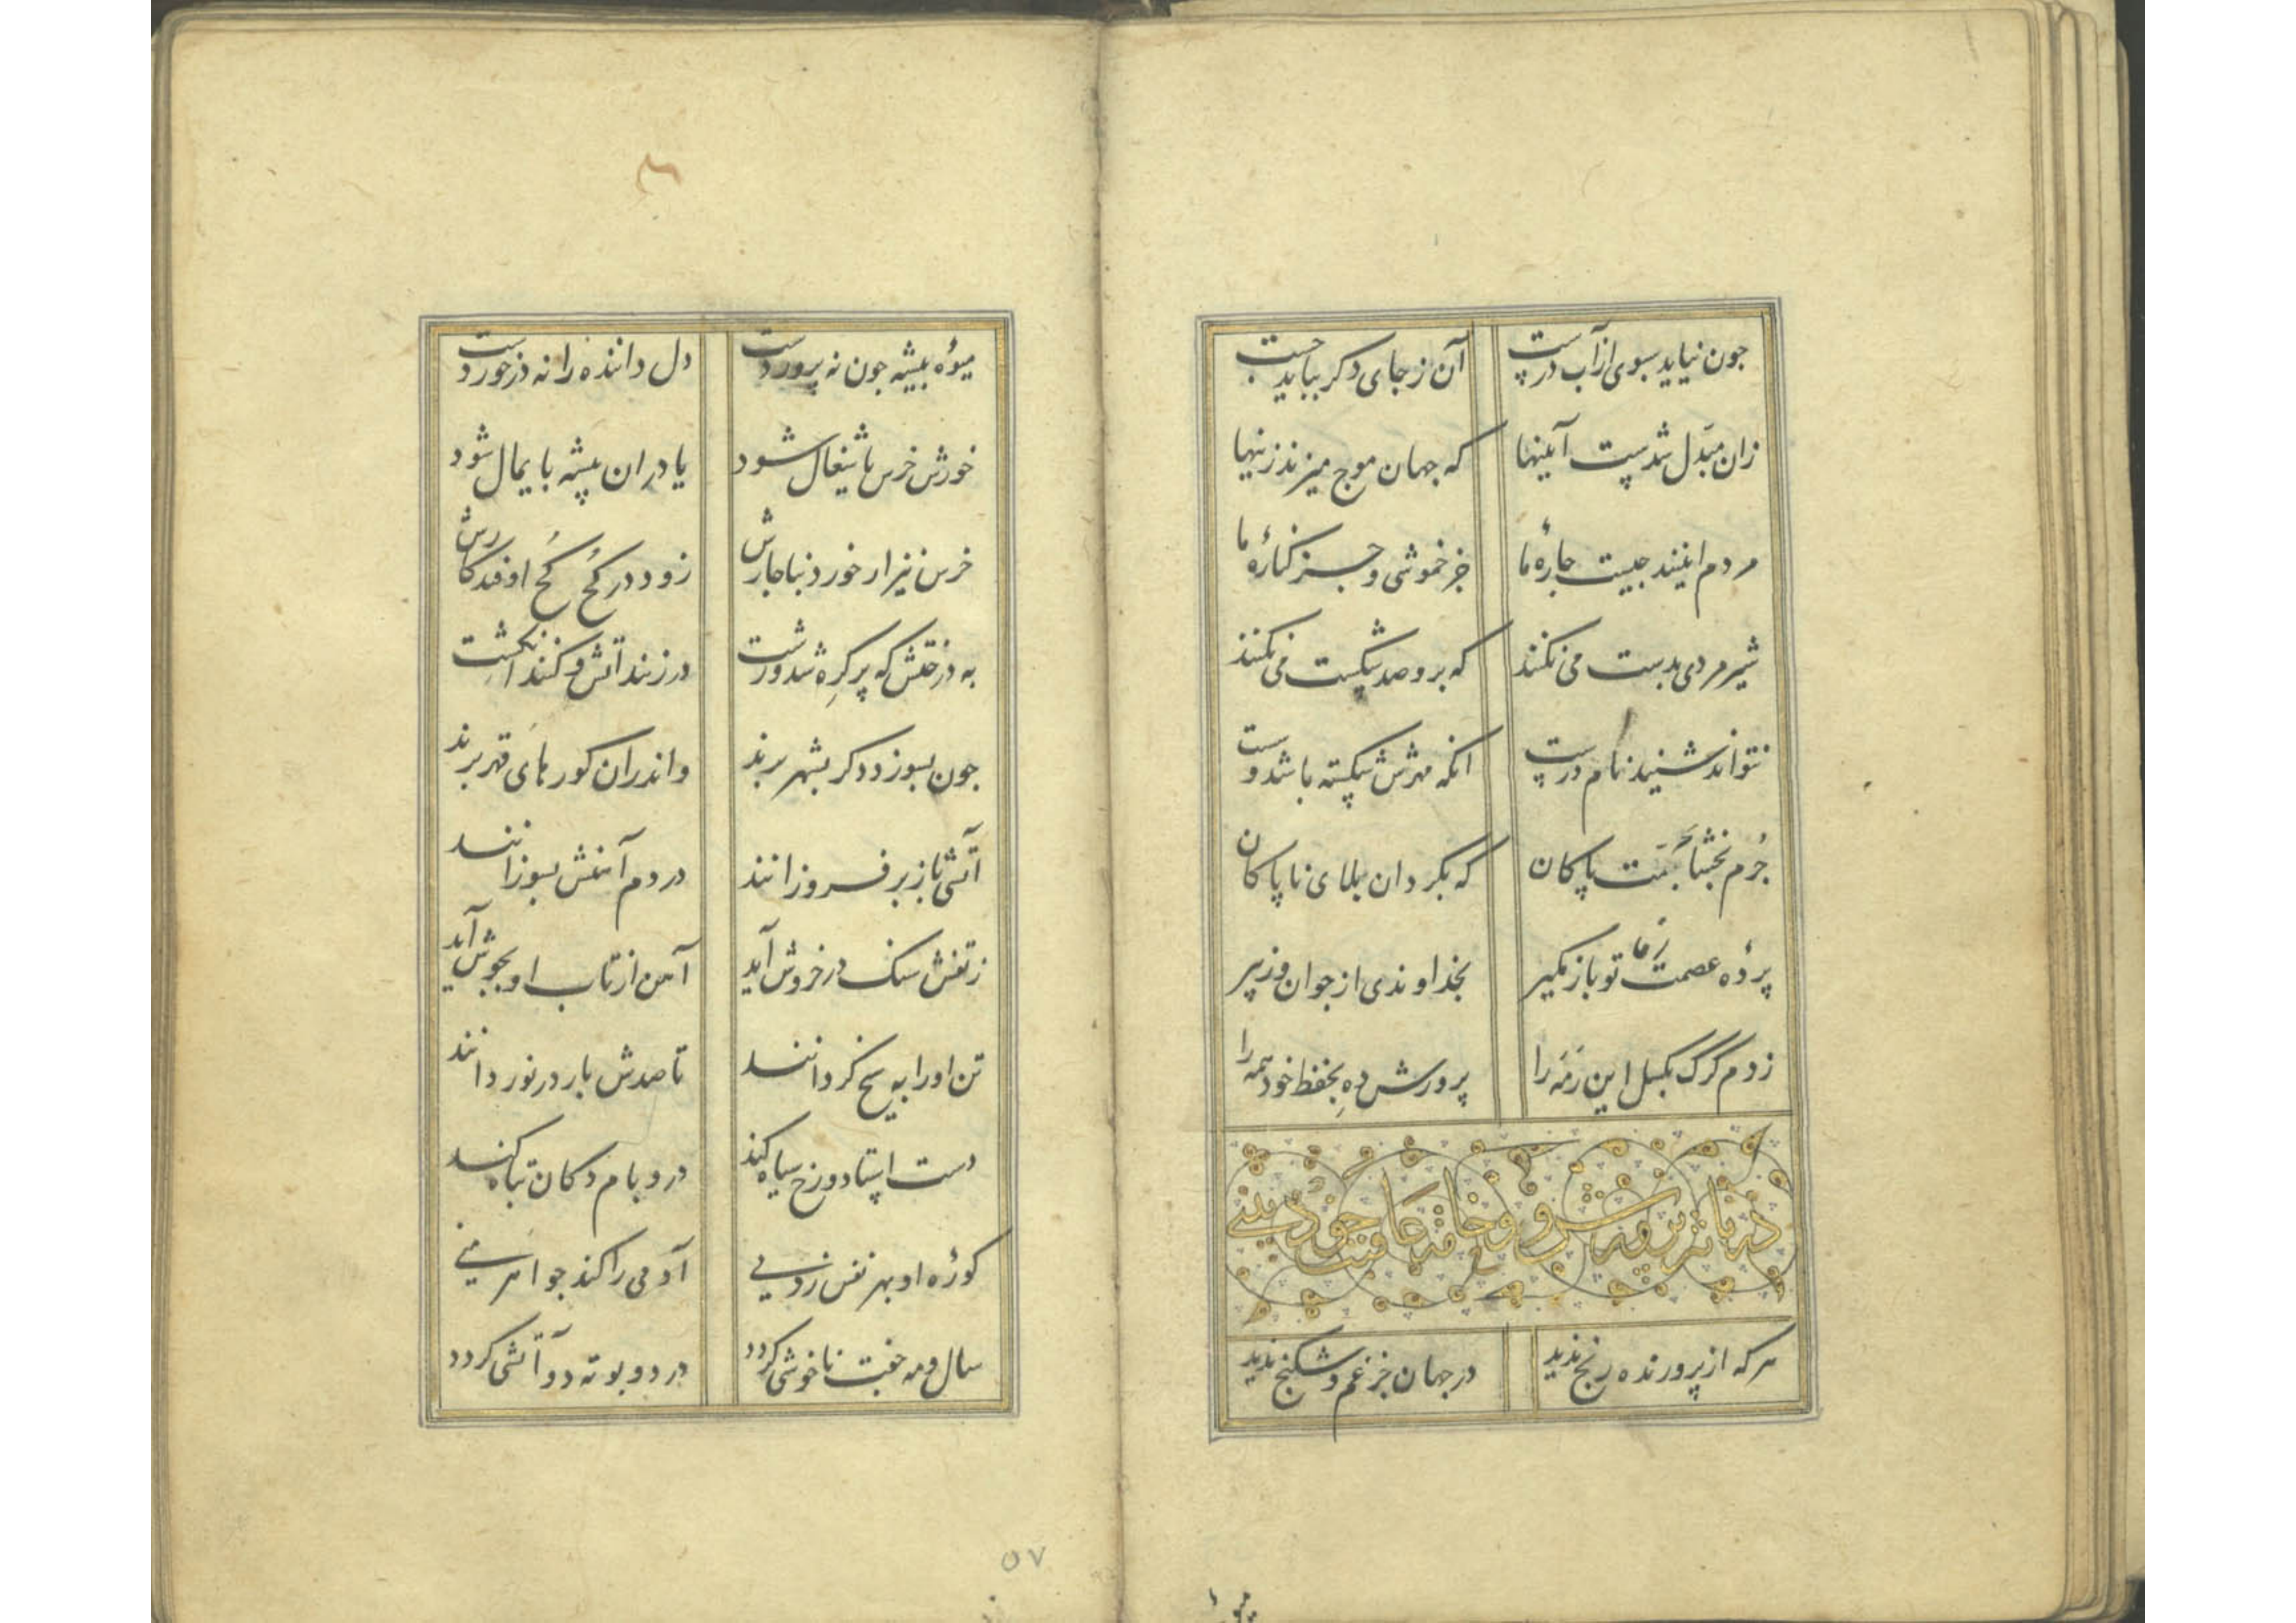 جون نیاید سبوی از آب درست آن ز جای دکر بباید جست
زان مبدل شدست آیینها که جهان موج میزند زینها
مردم اینند جیست جارهٔ ما جز خموشی و جز کنارهٔ ما
شیر مردی بدست می نکنند که برو صد شکست می نکنند
نتواند شنید نام درست انکه مهرش شکسته باشد و سست
جرم بخشا بحرمت پاکان که بگردان بلای ناپاکان
پردهٔ عصمت زما تو باز مکیر بخداوندی از جوان و ز پیر
ز دم گرگ بگسل این رمه را پرورش ده بحفظ خود همه را
در تاثیر پرورش و وخامت عاقبت خودبینی
هر که از پرورنده رنج ندید در جهان جز غم و شکنج ندید
میوهٔ بیشه جون نه پروردست دل داننده را نه درخوردست
خورش خرس یا شغال شود یا در ان بیشه بایمال شود
خرس نیز ار خورد بناجارش زود در کُخ کُخ اوفتد کارش
به درختش که پر کره شد و زشت در زنند آتش و کنند انکشت
جون بسوزد دکر بشهر برند واندران کورهای قهر برند
آتشی باز بر فروزانند در دم آتش بسوزانند
ز تفش سنک در خروش آید آهن از تاب او بجوش آید
تن او را به سیخ کردانند تا صدش بار در نوردانند
دست استاد و رخ سیاه کند در و بام دکان تباه کند
کورهٔ او بهر نفس زدنی آدمی را کند جو اهرمنی
سال و مه جفت ناخوشی کردد در دو بوته دو آتشی کردد
۵۷